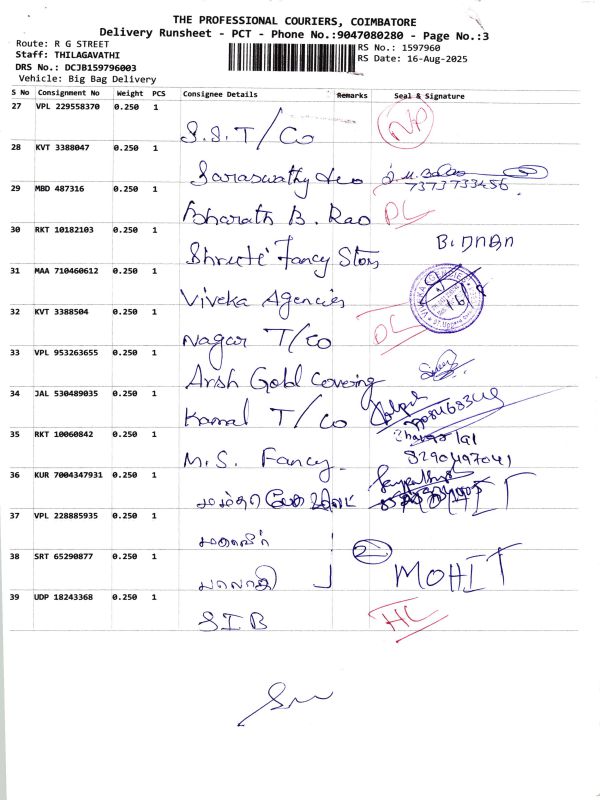 THE PROFESSIONAL COURIERS, COIMBATORE
Delivery Runsheet - PCT - Phone No.:9047080280 - Page No.:3
Route: R G STREET
Staff: THILAGAVATHI
DRS No.: DCJB159796003
Vehicle: Big Bag Delivery
RS No.: 1597960
RS Date: 16-Aug-2025
S No Consignment No Weight PCS Consignee Details Remarks Seal & Signature
27 VPL 229558370 0.250 1
S.S. T/Co NP
28 KVT 3388047 0.250 1
Saraswathy
7373733456
29 MBD 487316 0.250 1
Bharath B. Rao DL
30 RKT 10182103 0.250 1
Shruti Fancy Store
31 MAA 710460612 0.250 1
Viveka Agencies
32 KVT 3388504 0.250 1
Nagar T/Co DL
33 VPL 953263655 0.250 1
Arsh Gold Covering
34 JAL 530489035 0.250 1
Kamal T/Co
35 RKT 10060842 0.250 1
M.S. Fancy 8290497041
36 KUR 7004347931 0.250 1
37 VPL 228885935 0.250 1
38 SRT 65290877 0.250 1
2 MOHIT
39 UDP 18243368 0.250 1
SIB HL